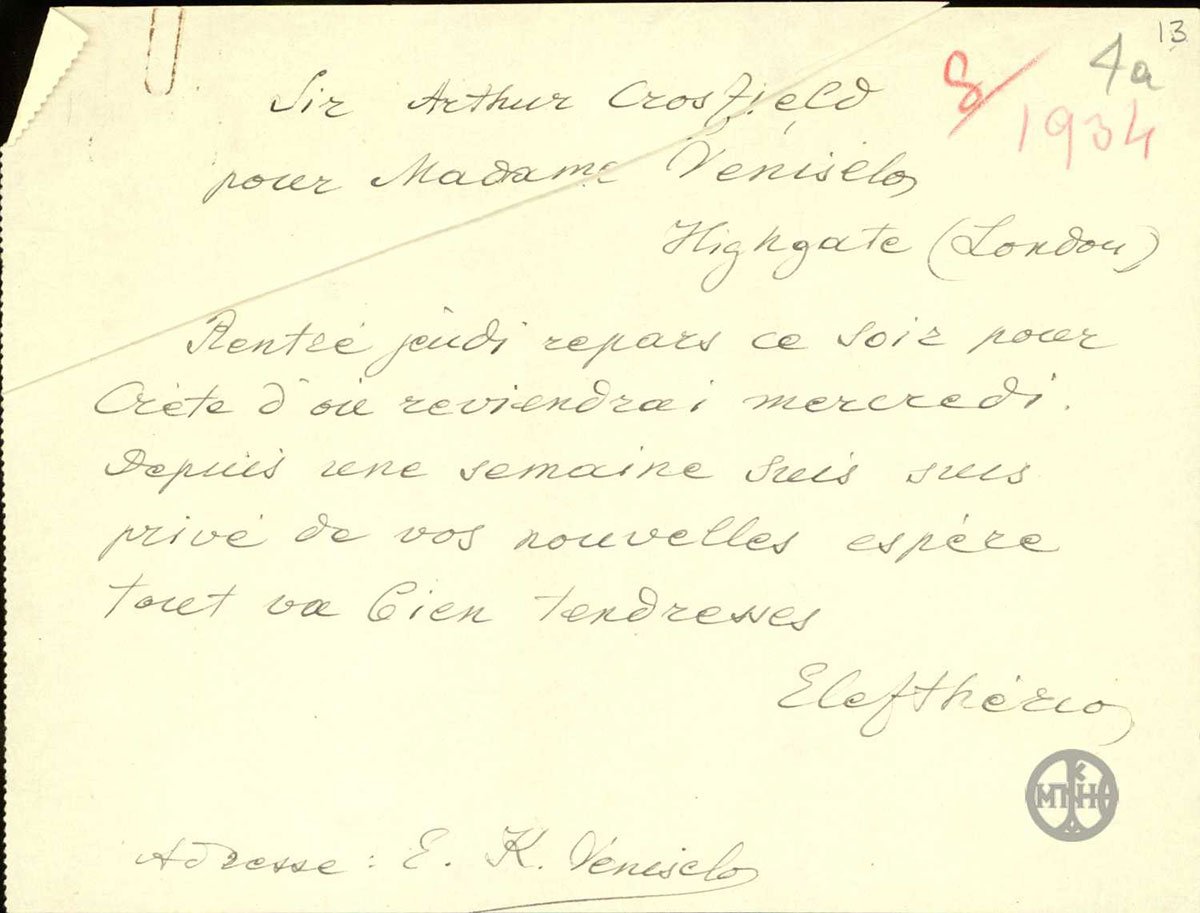 13
8/ 4a
1934
Sir Arthur Crosfield
pour Madame Venisélos
Highgate (London)
Rentré jeudi repars ce soir pour
Crète d'où reviendrai mercredi.
Depuis une semaine suis suis
privé de vos nouvelles espère
tout va bien tendresses
Elefthérios
ΜΠΚΗ
Adresse : E. K. Veniselos